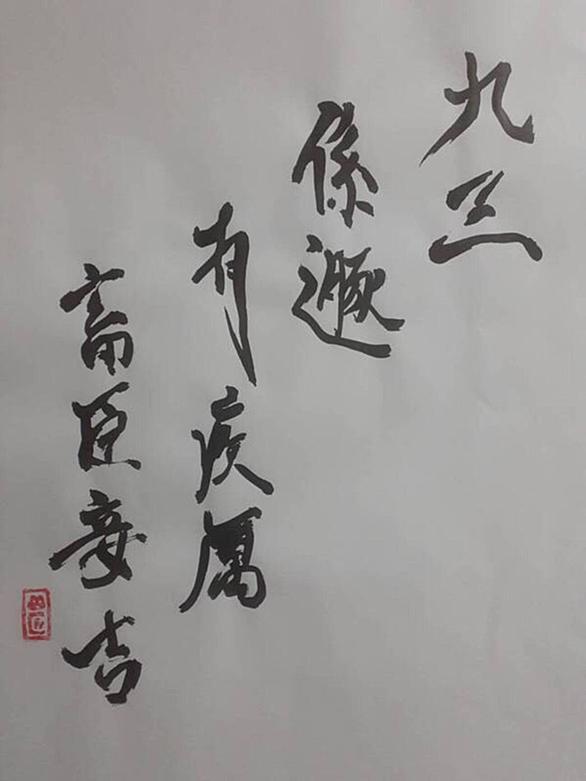 九三
係遯
有疾厲
畜臣妾吉